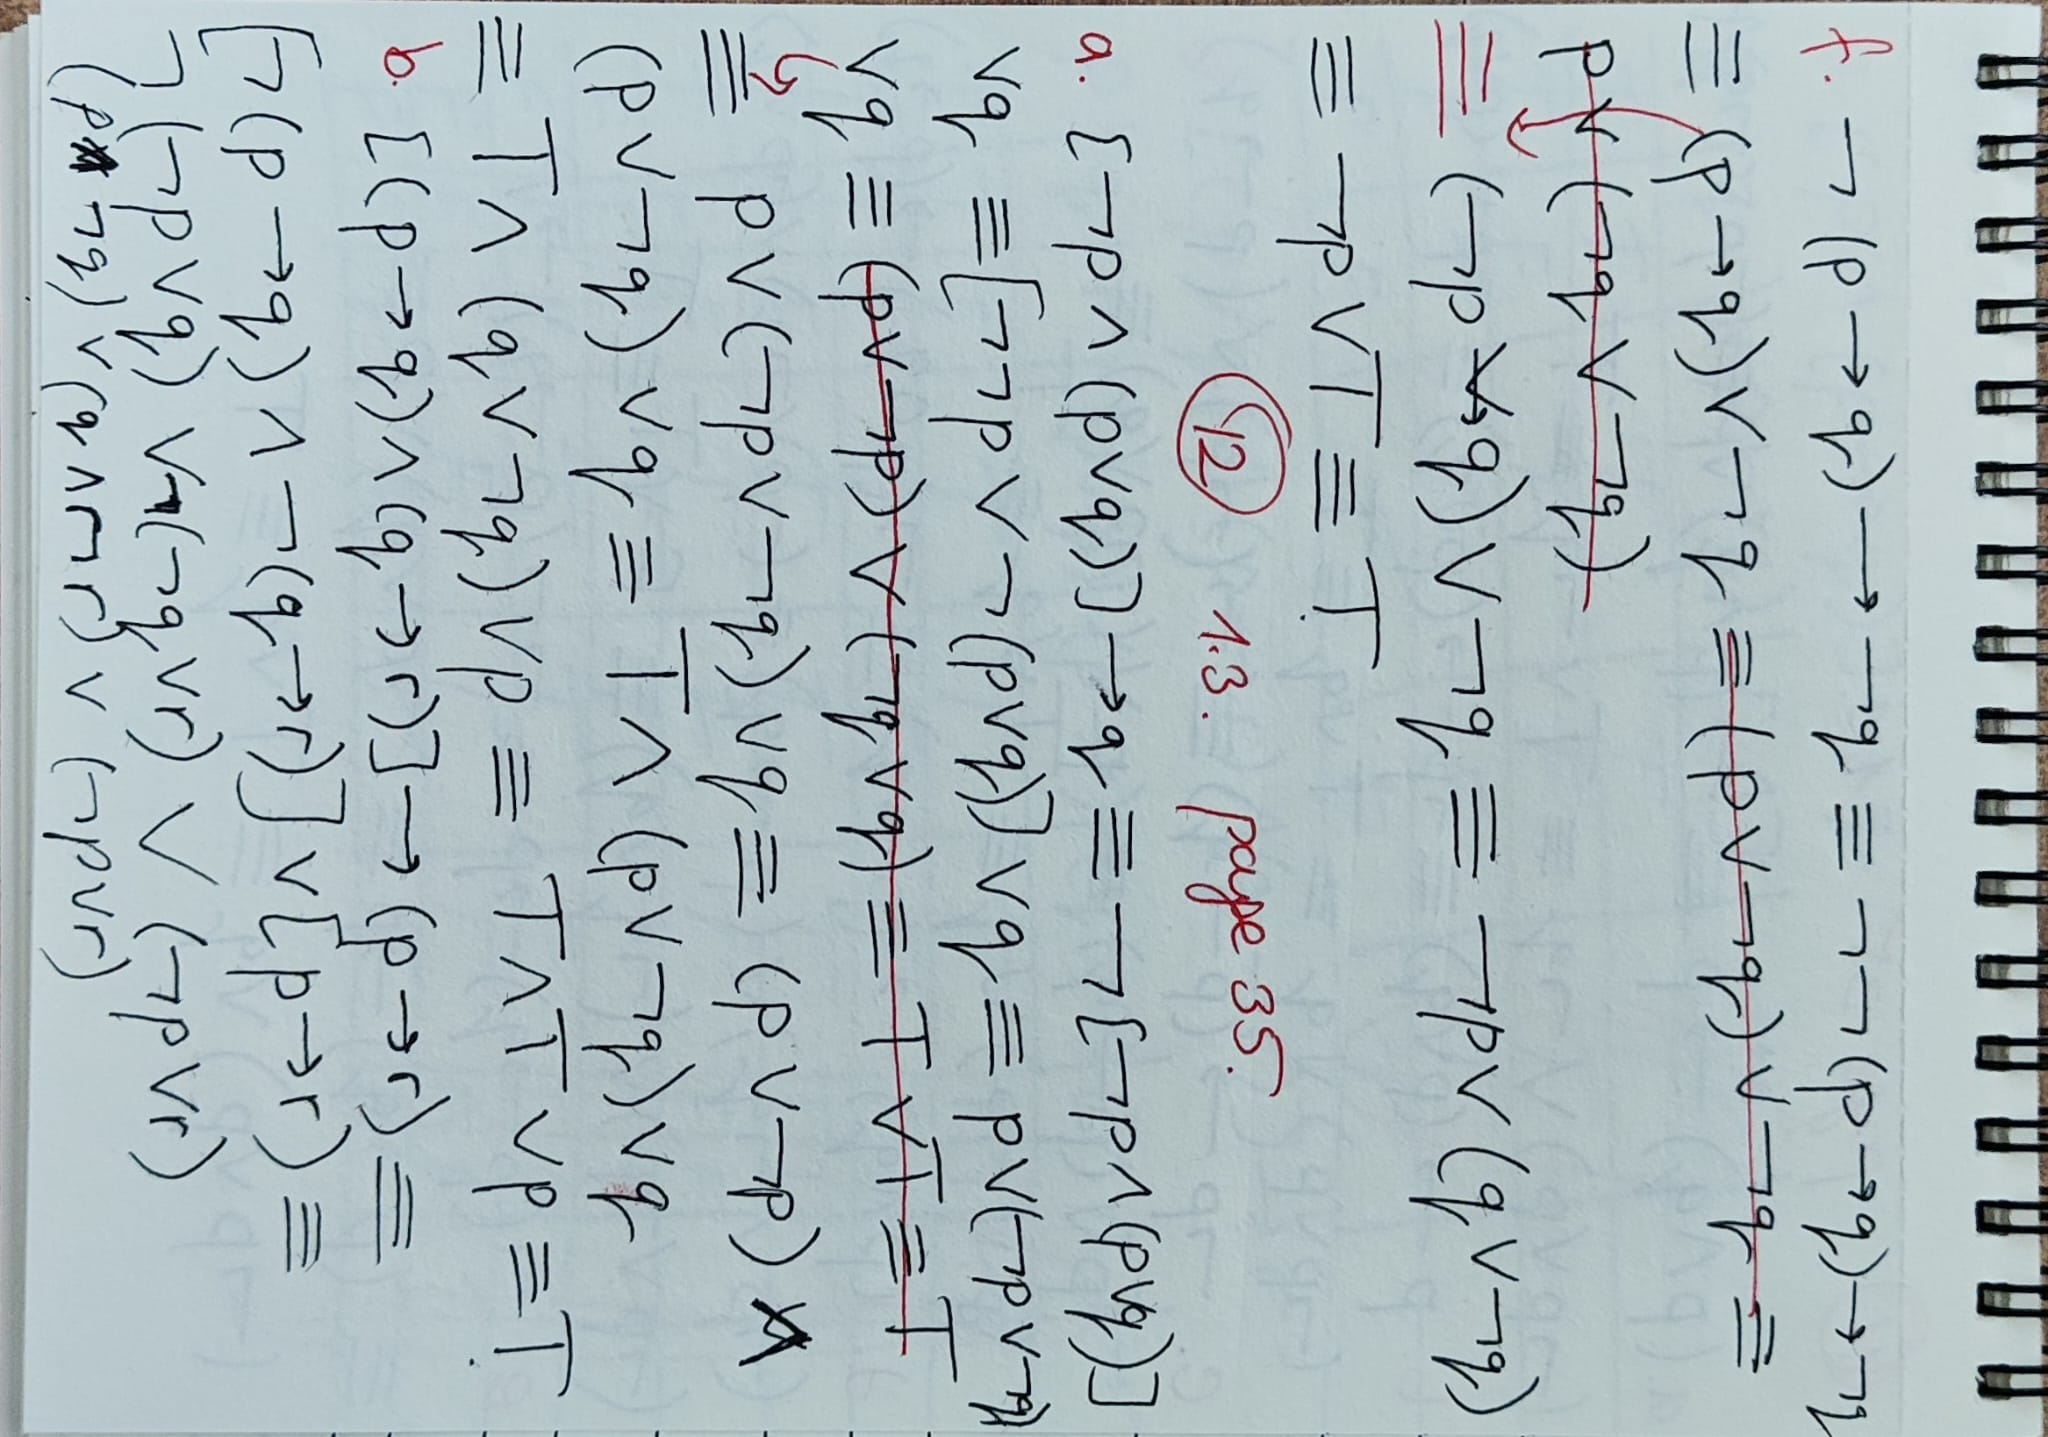 f. ¬(p → q) → ¬q ≡ ¬¬(p → q) → ¬q
≡ (p → q) ∨ ¬q ≡ (p ∨ ¬q) ∨ ¬q ≡
p ∨ (¬q) ∨ (¬q
≡ (¬p ∨ q) ∨ ¬q ≡ ¬p ∨ (q ∨ ¬q)
≡ ¬p ∨ T ≡ T
12 1.3. page 35.
a. [¬p ∧ (p ∨ q)] → q ≡ ¬[¬p ∧ (p ∨ q)]
∨ q ≡ [¬¬p ∨ ¬(p ∨ q)] ∨ q ≡ p ∨ (¬p ∧ ¬q)
∨ q ≡ (p ∨ ¬p) ∧ (¬q ∨ q) ≡ T ∨ T ≡ T
≡ p ∨ (¬p ∧ ¬q) ∨ q ≡ (p ∨ ¬p) ∧
(p ∨ ¬q) ∨ q ≡ T ∧ (p ∨ ¬q) ∨ q
≡ T ∧ p ∨ (¬q ∨ q) ≡ T ∧ p ∨ T ≡ T
b. [(p → q) ∧ (q → r)] → (p → r) ≡
¬[(p → q) ∧ ¬(q → r)] ∨ [p → r] ≡
¬{(¬p ∨ q) ∧ (¬q ∨ r)} ∨ (¬p ∨ r)
(p ∧ ¬q) ∨ (q ∧ ¬r) ∨ (¬p ∨ r)